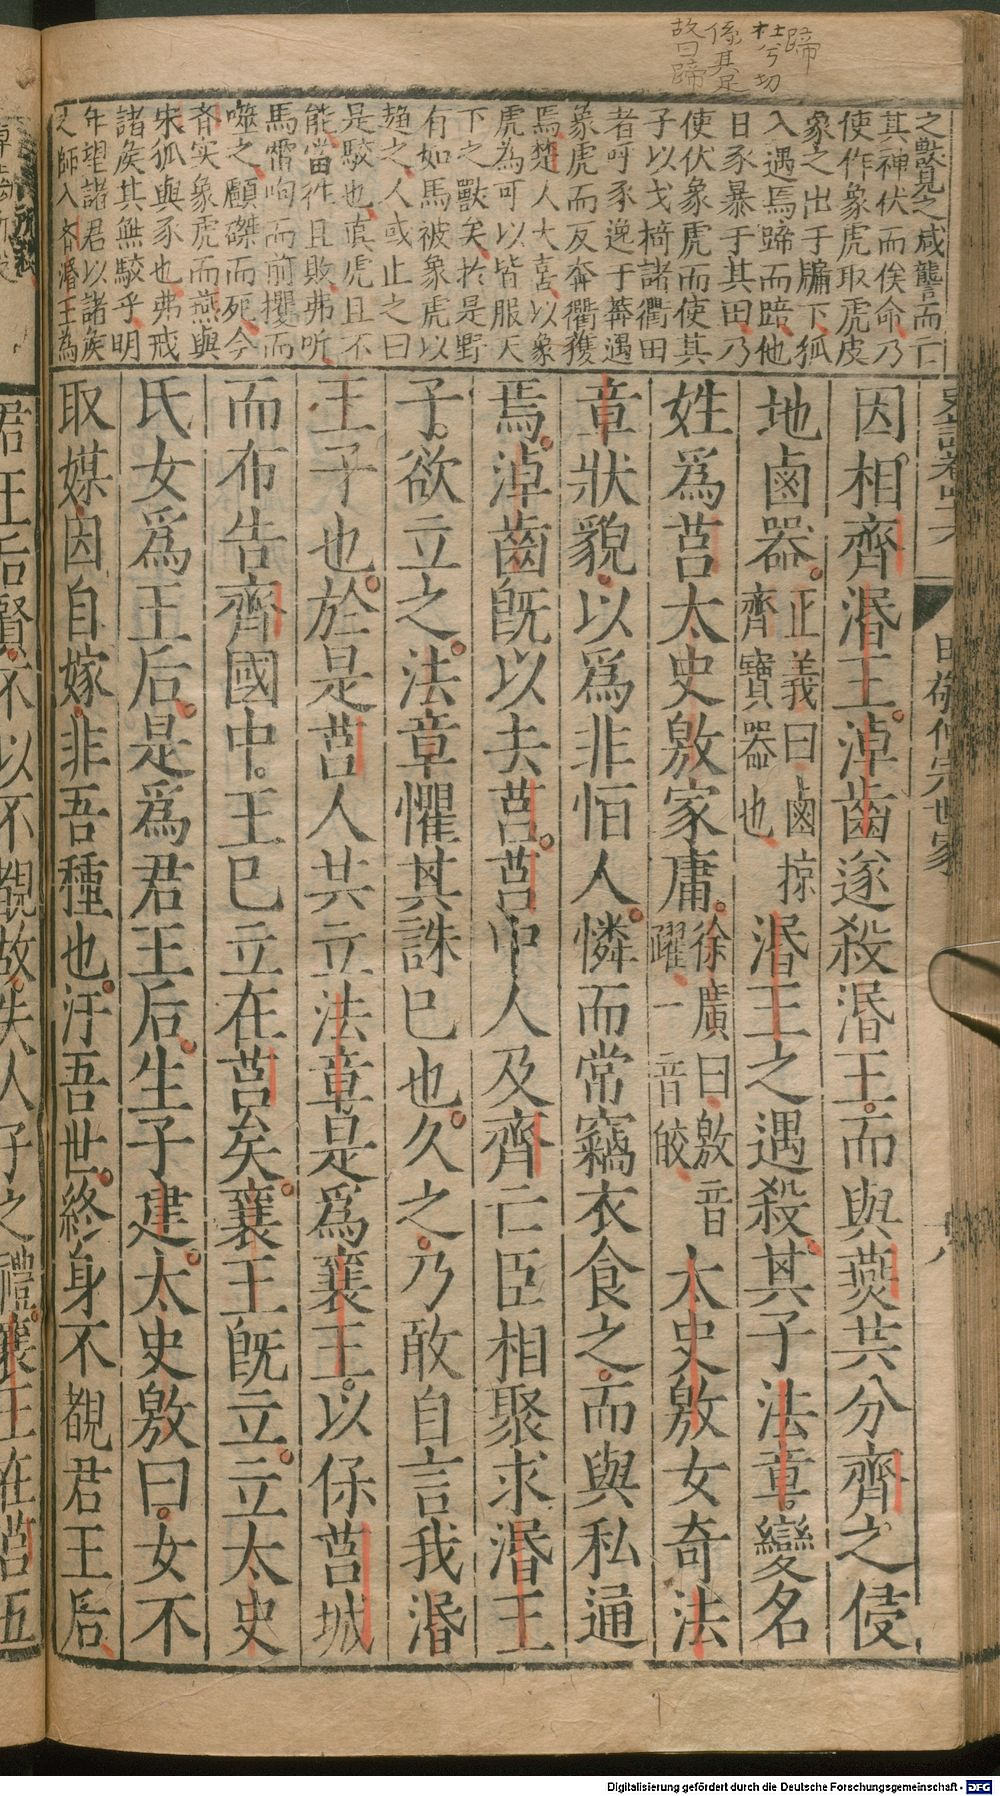 歸
杜兮切
係其足
故曰蹄
之獸見之咸讋而亡
其神伏而俟命乃
使作象虎取虎皮
象之出于牖下狐
入遇焉蹄而踣他
日豕暴于其田乃
使伏象虎而使其
子以戈椅諸衢田
者呼豕逸于莽遇
象虎而反奔衢獲
焉楚人大喜以象
虎為可以皆服天
下之獸矣於是野
有如馬被象虎以
趨之人或止之曰
是駮也真虎且不
能當徃且敗弗听
馬雷呴而前攫而
噬之顱磔而死今
斉实象虎而燕與
宋狐與豕也弗戒
諸侯其無駮乎明
年望諸君以諸侯
之師入斉湣王為
田敬仲完世家
因相齊湣王淖齒遂殺湣王而與燕共分齊之侵
地鹵器正義曰鹵掠齊寶器也湣王之遇殺其子法章變名
姓爲莒太史敫家庸徐廣曰敫音躍一音皎太史敫女奇法
章狀貌以爲非恒人憐而常竊衣食之而與私通
焉淖齒旣以去莒莒中人及齊亡臣相聚求湣王
子欲立之法章懼其誅已也久之乃敢自言我湣
王子也於是莒人共立法章是爲襄王以保莒城
而布告齊國中王已立在莒矣襄王旣立立太史
氏女爲王后是爲君王后生子建太史敫曰女不
取媒因自嫁非吾種也汙吾世終身不覩君王后
君王后賢不以不覩故失人子之禮襄王在莒五
Digitalisierung gefördert durch die Deutsche Forschungsgemeinschaft - DFG